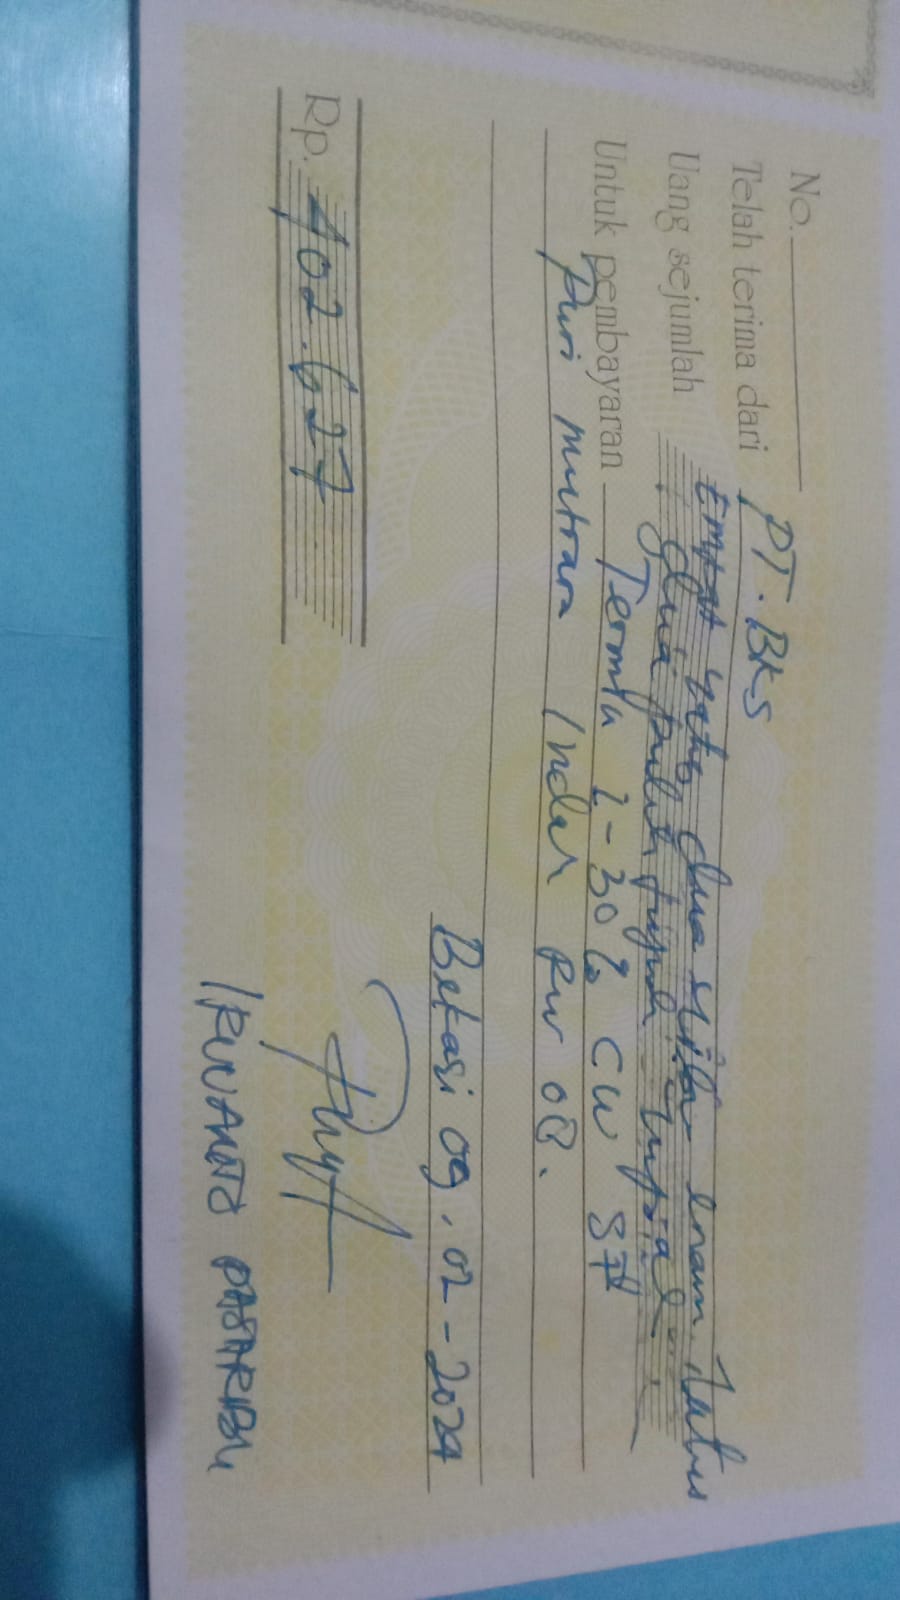 No.
Telah terima dari PT. BKS
Uang sejumlah Empat ratus dua ribu enam ratus
dua puluh tujuh rupiah
Untuk pembayaran 1 - 30% CW S
Puri Indah RW 08.
Bekasi 09.02-2024
Rp. 402.627